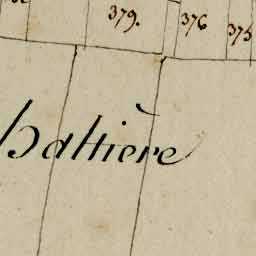 379. 376 375
hattière